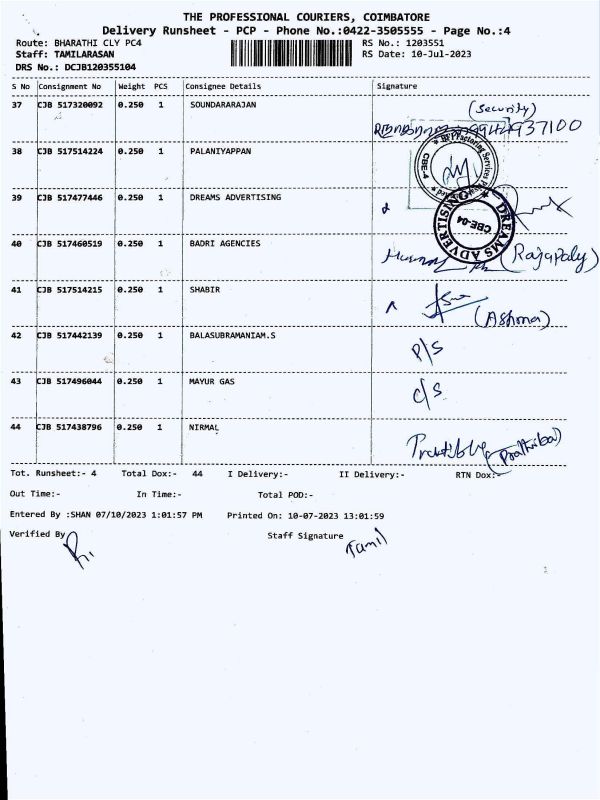 THE PROFESSIONAL COURIERS, COIMBATORE
Delivery Runsheet - PCP - Phone No.:0422-3505555 - Page No.:4
Route: BHARATHI CLY PC4 RS No.: 1203551
Staff: TAMILARASAN RS Date: 10-Jul-2023
DRS No.: DCJB120355104
S No Consignment No Weight PCS Consignee Details Signature
37 CJB 517320092 0.250 1 SOUNDARARAJAN (Security)
937100
38 CJB 517514224 0.250 1 PALANIYAPPAN
CBE-4
39 CJB 517477446 0.250 1 DREAMS ADVERTISING
DREAMS ADVERTISING
CBE-04
40 CJB 517460519 0.250 1 BADRI AGENCIES
41 CJB 517514215 0.250 1 SHABIR
42 CJB 517442139 0.250 1 BALASUBRAMANIAM.S P/S
43 CJB 517496044 0.250 1 MAYUR GAS C/S
44 CJB 517438796 0.250 1 NIRMAL
Tot. Runsheet:- 4 Total Dox:- 44 I Delivery:- II Delivery:- RTN Dox:-
Out Time:- In Time:- Total POD:-
Entered By :SHAN 07/10/2023 1:01:57 PM Printed On: 10-07-2023 13:01:59
Verified By Staff Signature Tamil